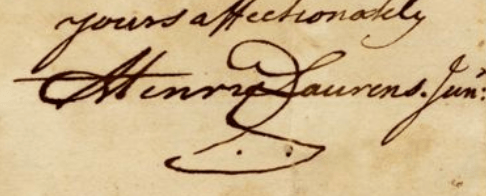 yours affectionately
Henry Laurens. Junr: